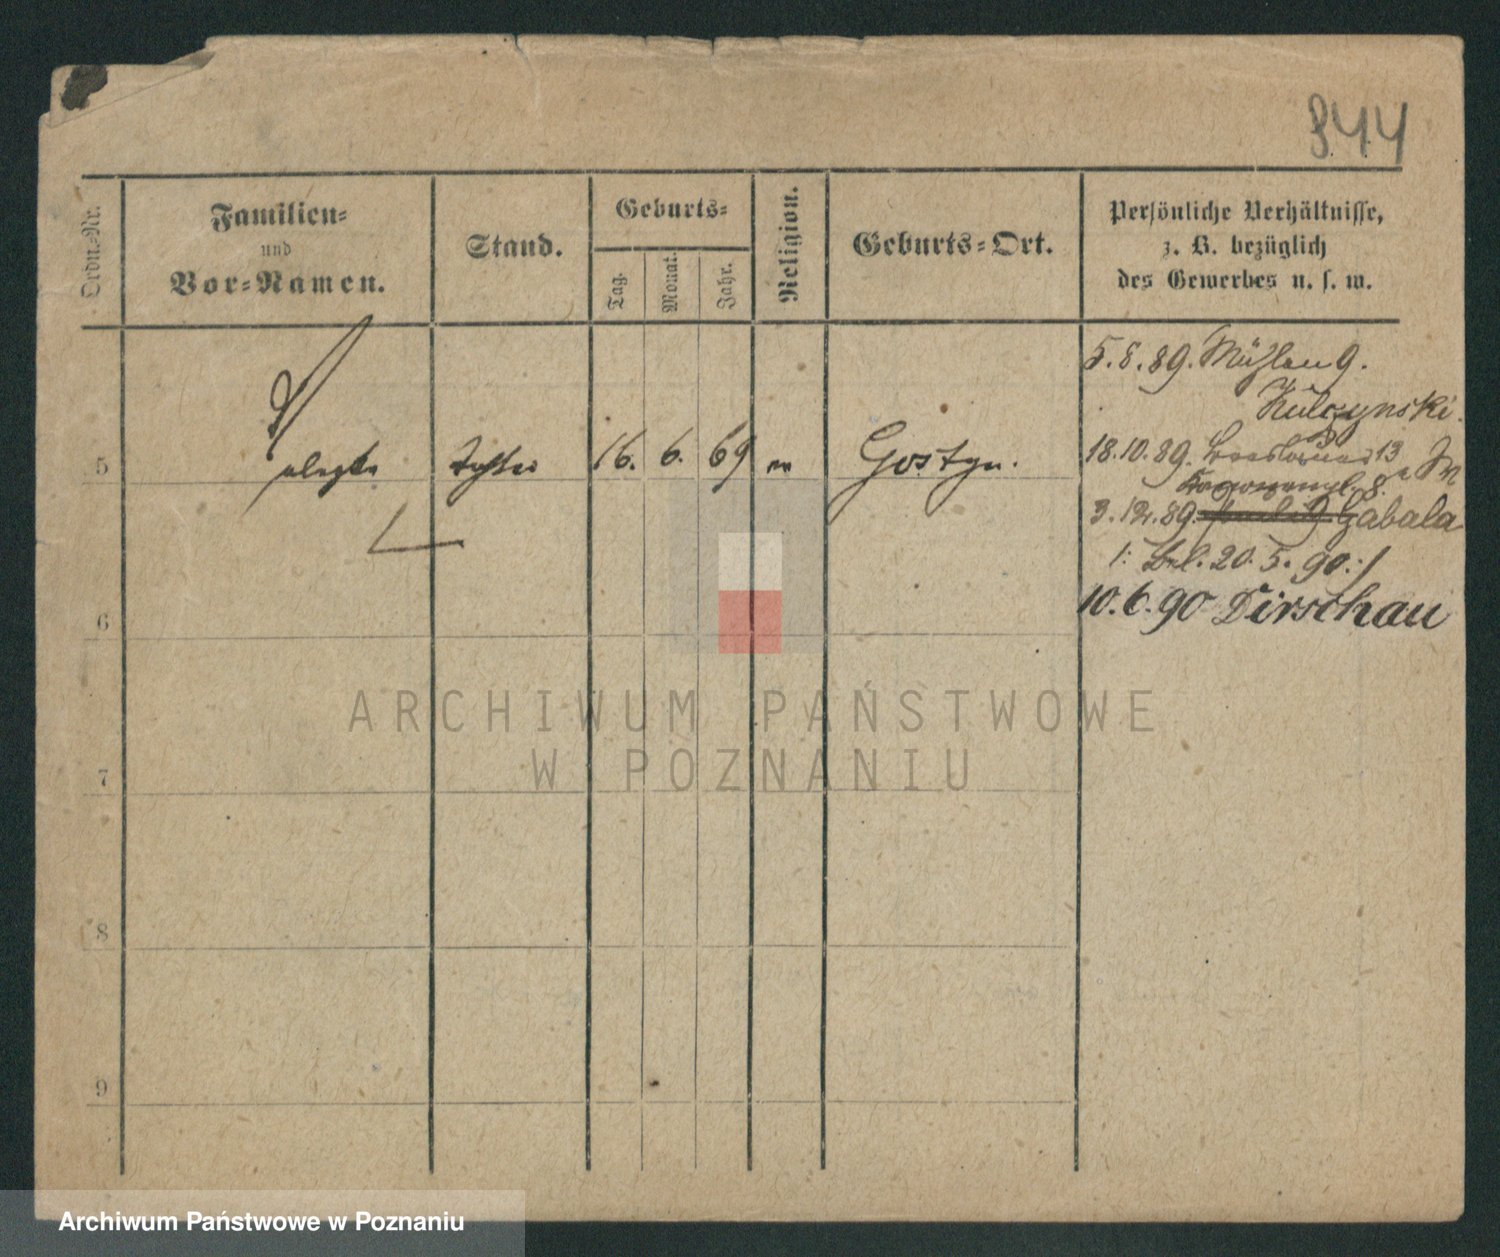 844
Ordn.-Nr.
Familien-
und
Vor-Namen.
Stand.
Geburts-
Tag.
Monat.
Jahr.
Religion.
Geburts-Ort.
Persönliche Verhältnisse,
z. B. bezüglich
des Gewerbes u. s. w.
5.8.89. Mühlen 9.
Kulczynski.
5 16. 6. 69 Gostyn.
18.10.89. 13
8.
3.12.89. Gabala
20.5.90.:/
10.6.90 Dirschau
6
7
8
9
ARCHIWUM PAŃSTWOWE
W POZNANIU
Archiwum Państwowe w Poznaniu